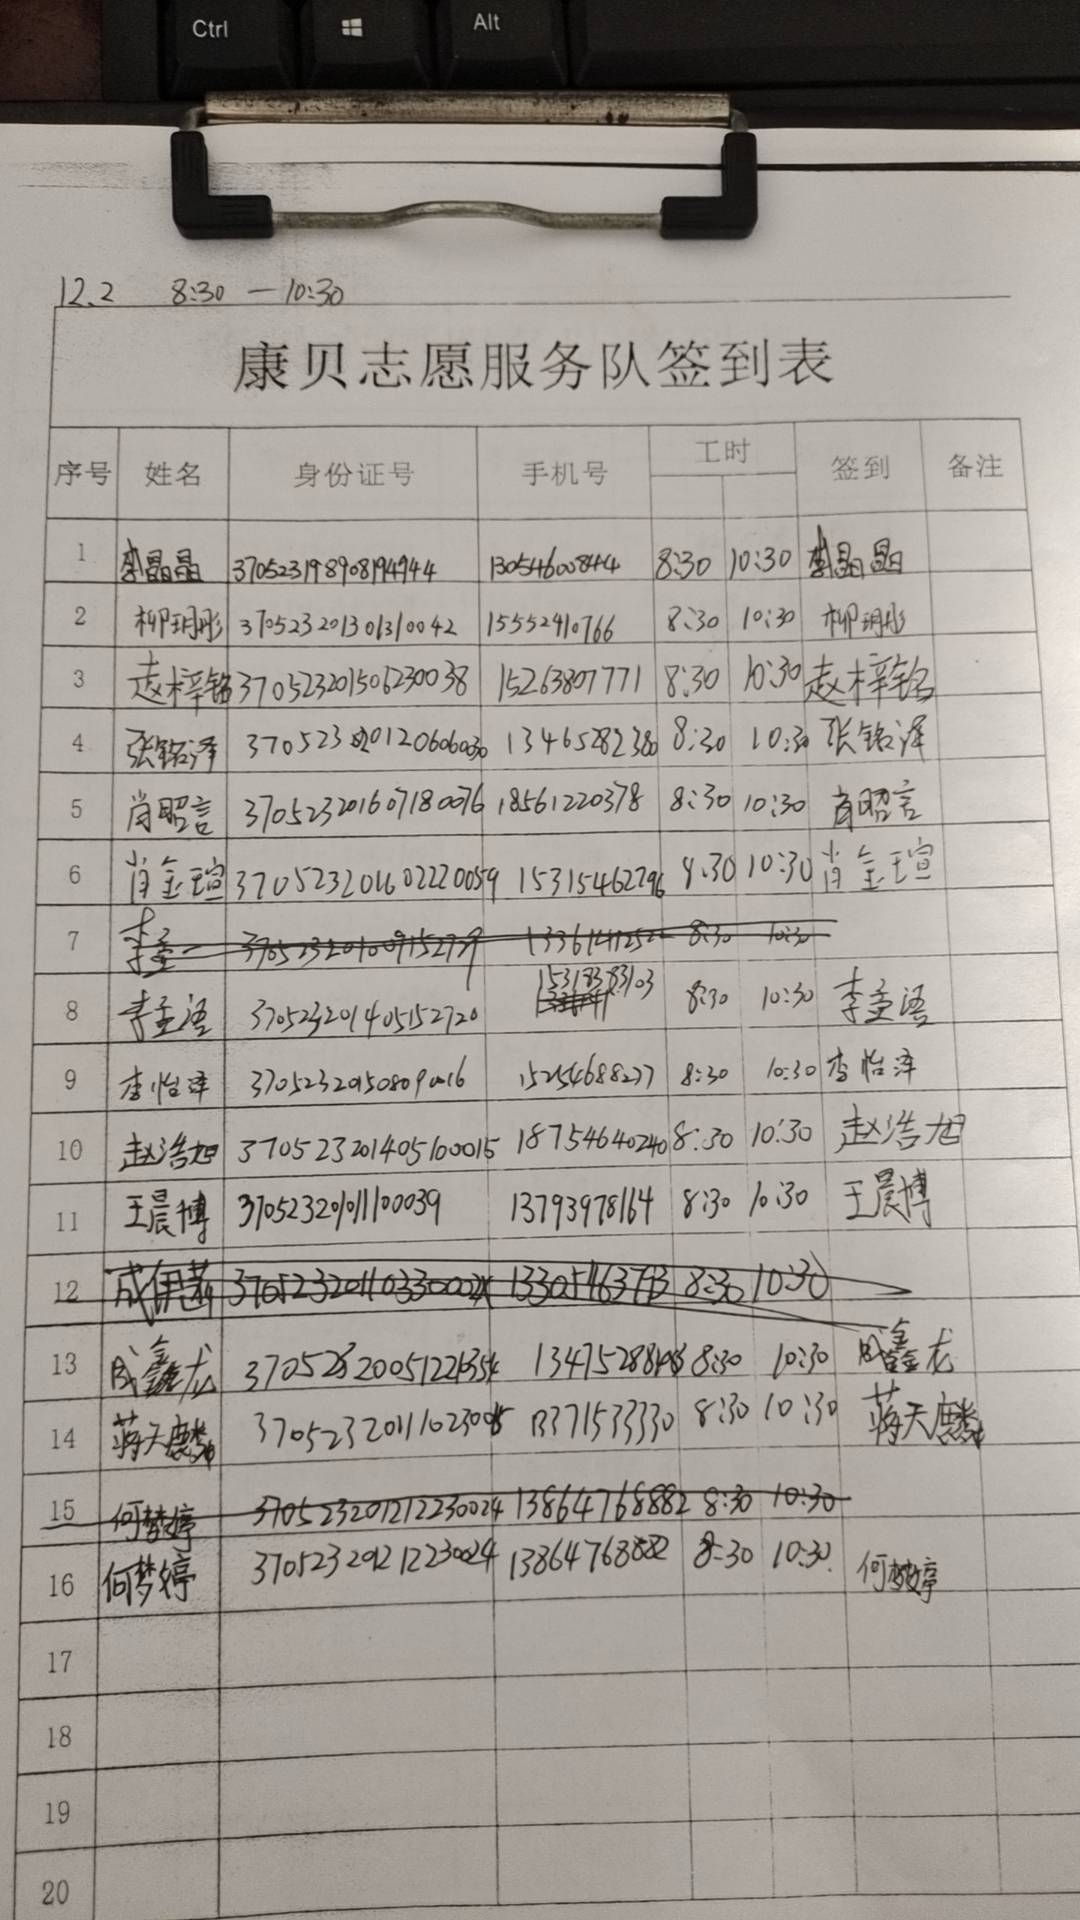 Ctrl
Alt
12.2 8:30 — 10:30
康贝志愿服务队签到表
序号 姓名 身份证号 手机号 工时 签到 备注
1 李晶晶 8:30 10:30 李晶晶
2 柳玥彤 370523201301310042 15552410766 8:30 10:30 柳玥彤
3 赵梓铭 370523201506230038 15263807771 8:30 10:30 赵梓铭
4 张铭泽 13465282380 8:30 10:30 张铭泽
5 肖昭言 370523201607180076 18561220378 8:30 10:30 肖昭言
6 肖金瑄 370523201602220059 15315462796 8:30 10:30 肖金瑄
7 8:30 10:30
8 李孟语 370523201405152720 15318383103 8:30 10:30 李孟语
9 李怡泽 15254688277 8:30 10:30 李怡泽
10 赵浩旭 370523201405100015 18754640240 8:30 10:30 赵浩旭
11 王晨博 13793978164 8:30 10:30 王晨博
12 8:30 10:30
13 成鑫龙 8:30 10:30 成鑫龙
14 蒋天麟 13371533330 8:30 10:30 蒋天麟
15 何梦婷 370523201212230024 13864768882 8:30 10:30
16 何梦婷 370523201212230024 13864768882 8:30 10:30 何梦婷
17
18
19
20